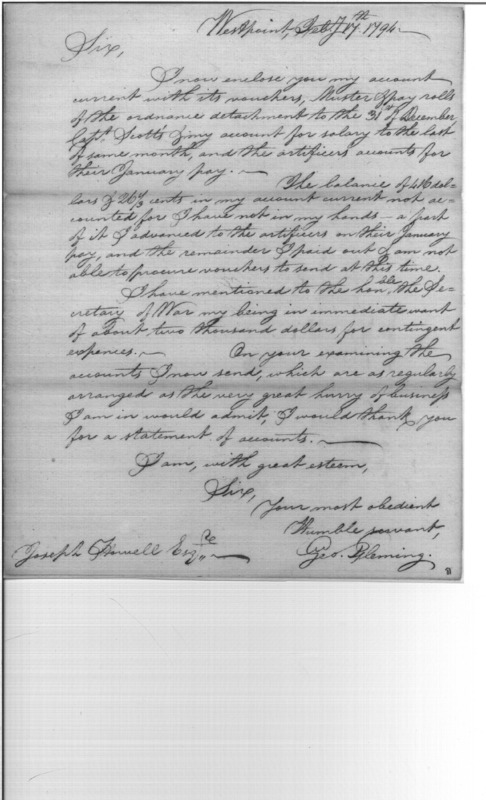 Westpoint, Feby 17th 1794.
Sir,
I now enclose you my account
current with its vouchers, Muster & pay rolls
of the ordnance detachment to the 31st of December
Capt. Scott's & my account for salary to the last
of same month, and the artificers accounts for
their January pay. —
The balance of 416 dol-
lars & 26 2/3 cents in my account current not ac-
counted for I have not in my hands — a part
of it I advanced to the artificers on their January
pay, and the remainder I paid out & am not
able to procure vouchers to send at this time.
I have mentioned to the honble the Se-
cretary of War my being in immediate want
of about two thousand dollars for contingent
expences. — On your examining the
accounts I now send, which are as regularly
arranged as the very great hurry of business
I am in would admit, I would thank you
for a statement of accounts. —
I am, with great esteem,
Sir,
Your most obedient
Humble servant,
Joseph Howell Esqre Geo. Fleming.